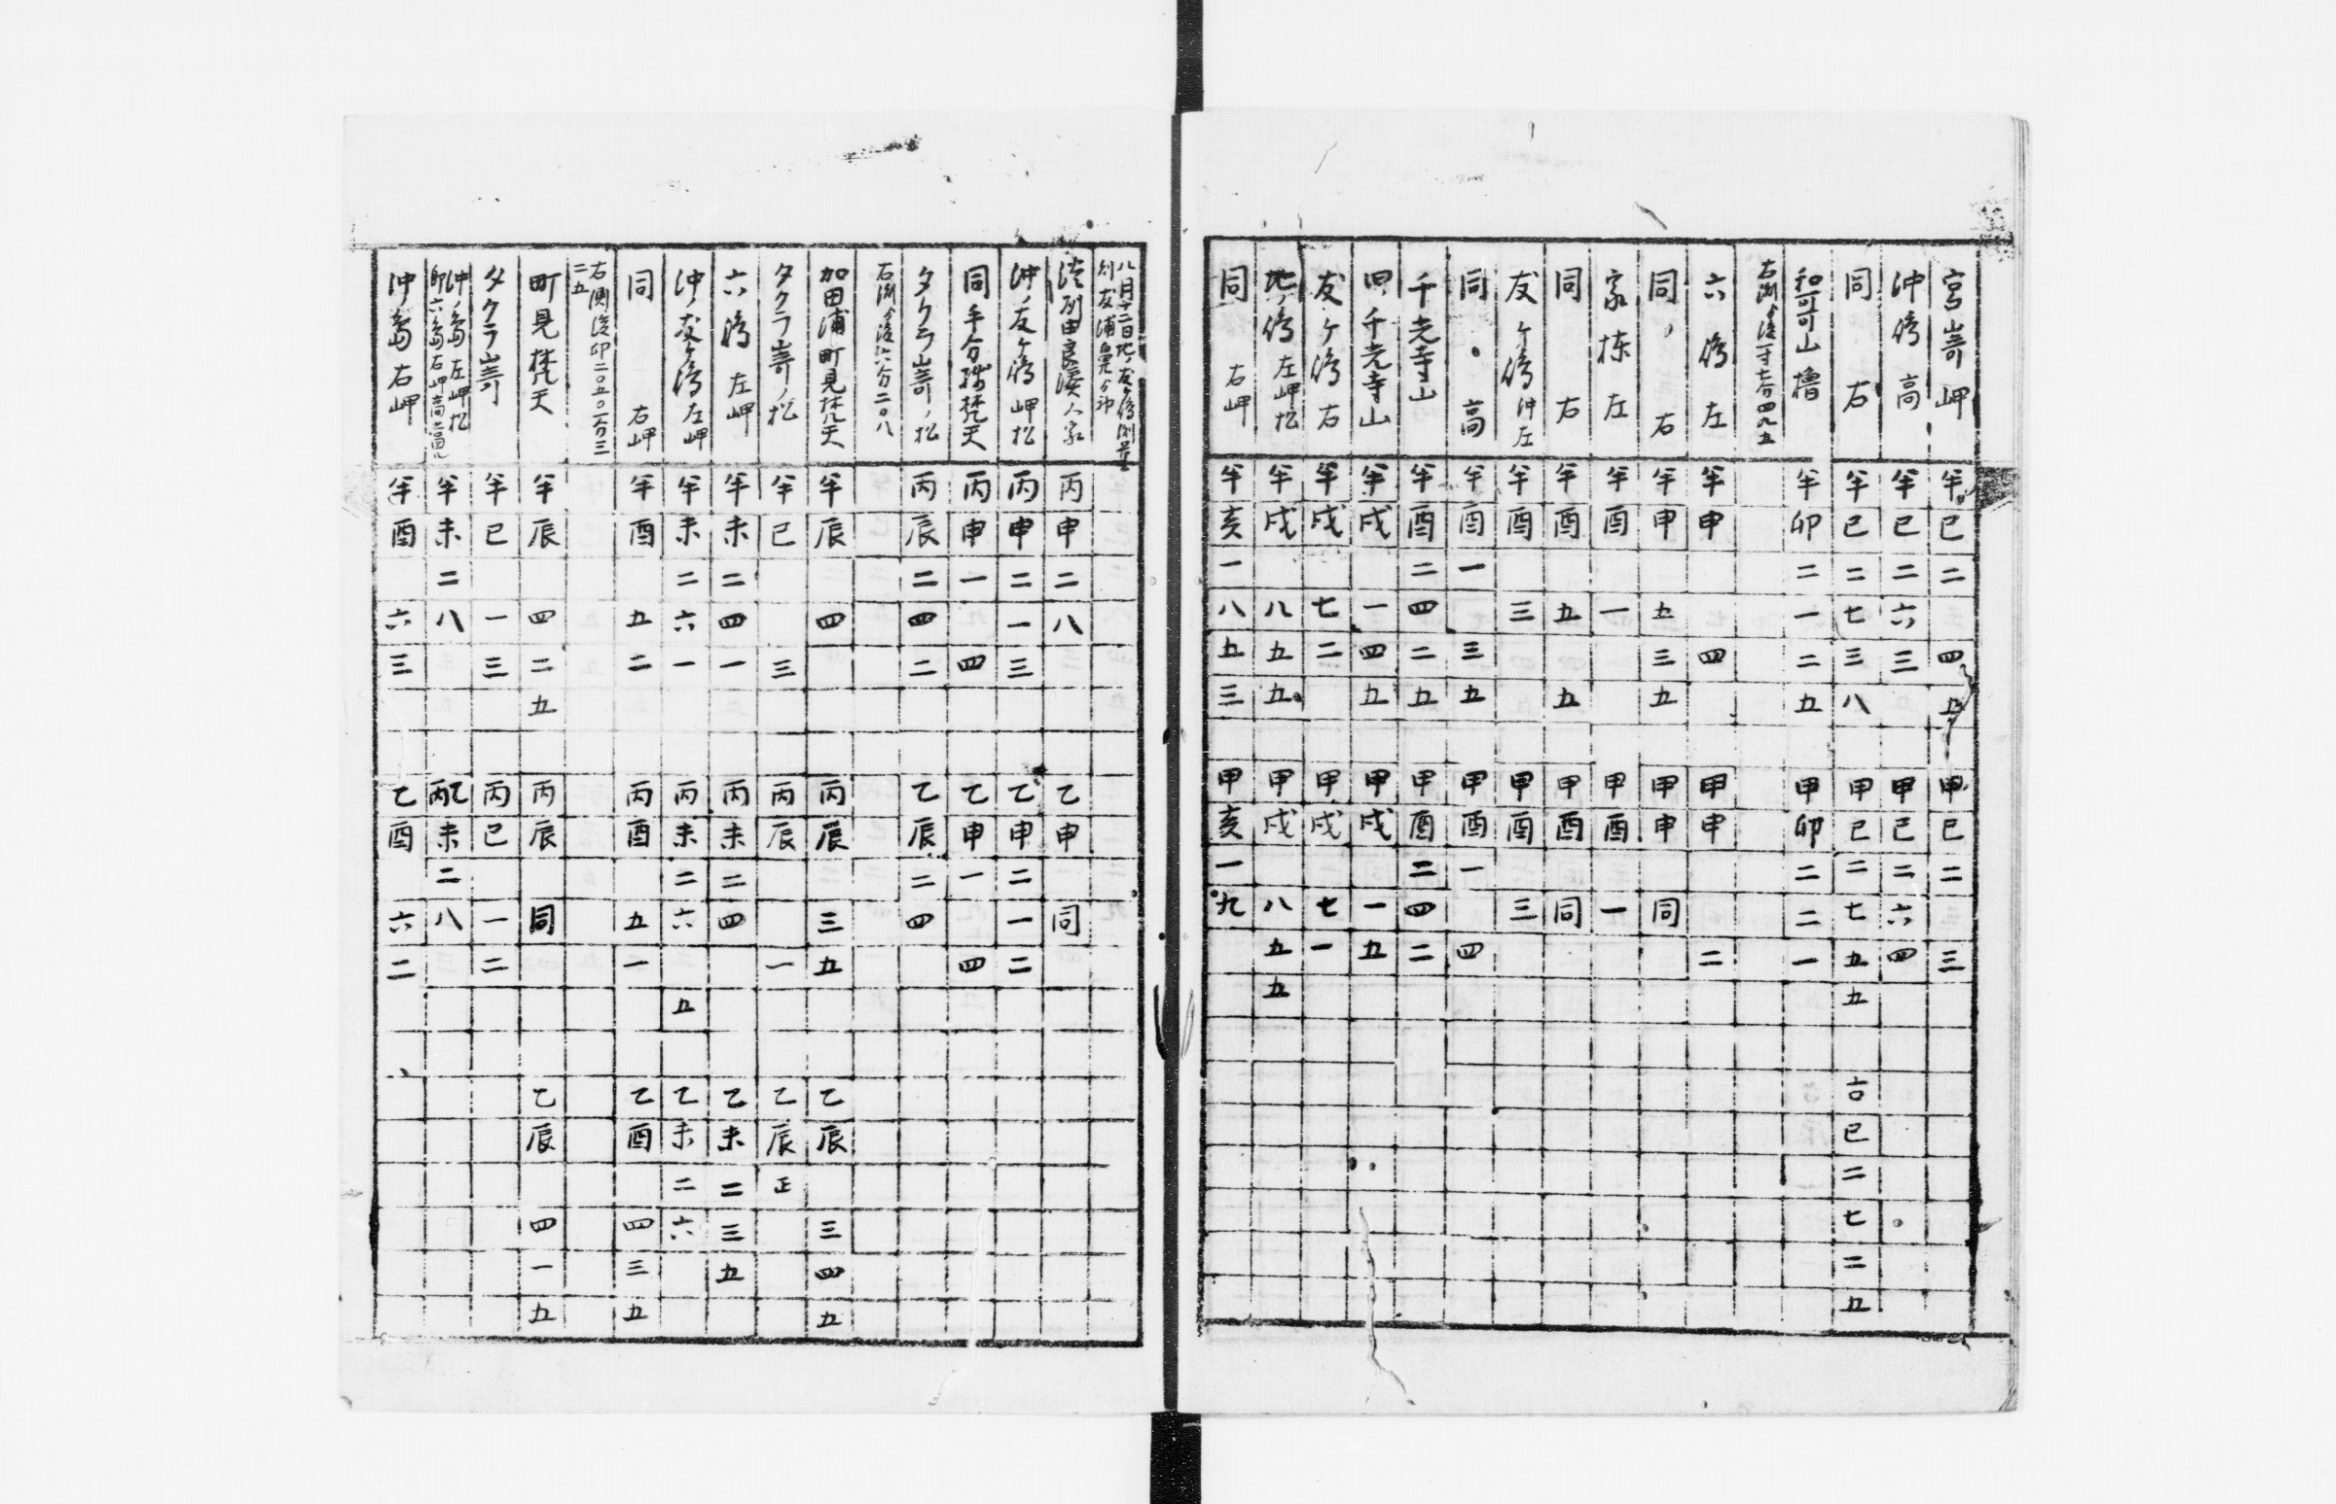 宮嵜岬 半巳二 四五 甲巳二 三
沖嶋 高 半巳二六三 甲巳二六四
同 右 半巳二七三八 甲巳二七五五 巳二七二五
和哥山櫓 半卯二一二五 甲卯二二一
右測後一寸七分四九五
六嶋 左 半申 四 甲申 二
同 右 半申 五三五 甲申 同
家棟 左 半酉 一 甲酉 一
同 右 半酉 五 五 甲酉 同
友ヶ嶋 沖左 半酉 三 甲酉 三
同 高 半酉一 三五 甲酉一 四
千光寺山 半酉二四二五 甲酉二四二
千光寺山 半戌 一四五 甲戌 一五
友ヶ嶋 右 半戌 七二 甲戌 七一
地ノ嶋 左岬松 半戌 八五五 甲戌 八五五
同 右岬 半亥一八五三 甲亥一九
八月十二日地ノ友ヶ嶋測量
友浦
由良湊人家 丙申二八 乙申 同
沖ノ友ヶ嶋岬松 丙申二一三 乙申二一二
同手分 梵天 丙申一 四 乙申一 四
タクラ嵜ノ松 丙辰二四二 乙辰二四
右測後六分二〇八
加田浦町見梵天 半辰 四 丙辰 三五 乙辰 三四五
タクラ嵜ノ松 半巳 三 丙辰 一 乙辰正
六嶋 左岬 半未二四一 丙未二四 乙未二三五
沖ノ友ヶ嶋 左岬 半未二六一 丙未二六 五 乙未二六
同 右岬 半酉 五二 丙酉 五一 乙酉 四三五
右測後印二〇五〇二分三二五
町見梵天 半辰 四二五 丙辰 同 乙辰 四一五
タクラ嵜 半巳 一三 丙巳 一二
沖ノ嶌左岬松
即六嶌右岬高 半未二八 丙乙未二八
沖嶌 右岬 半酉 六三 乙酉 六二